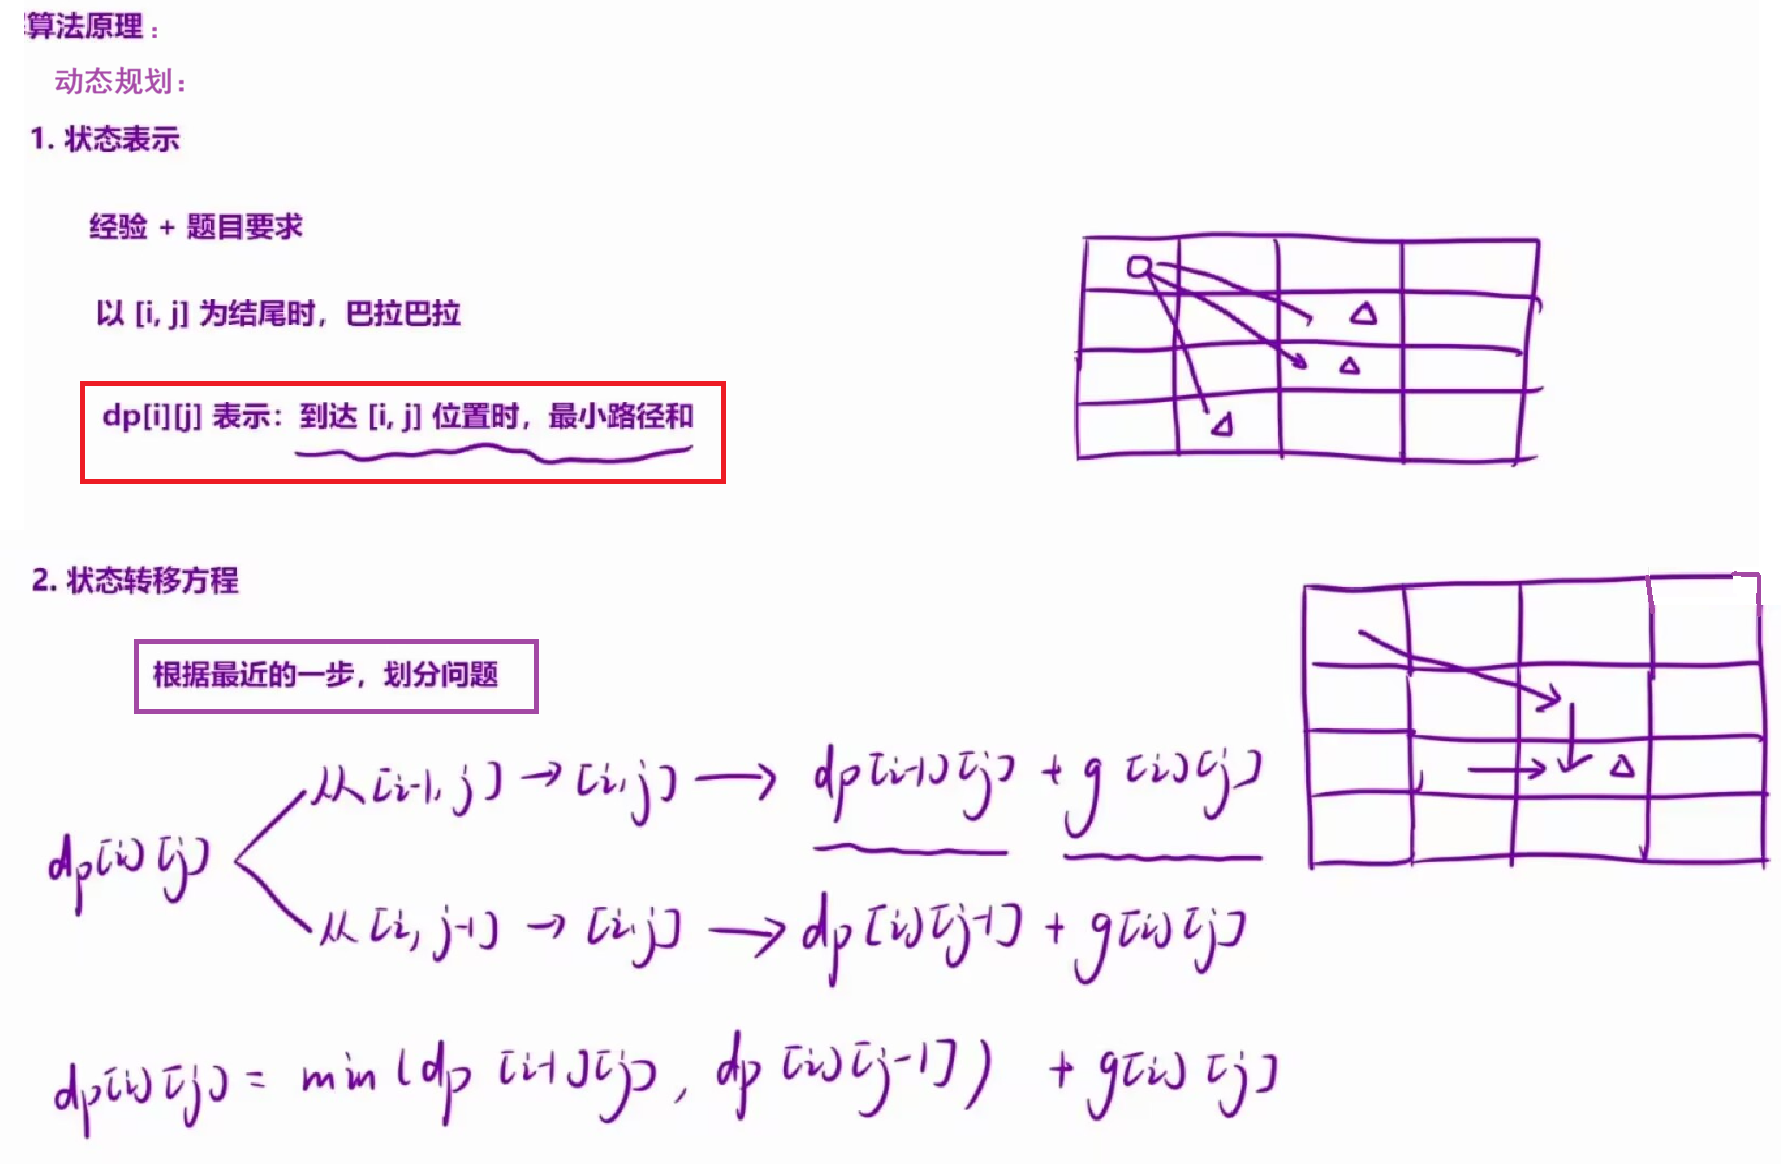 算法原理：
动态规划：
1. 状态表示
经验 + 题目要求
以 [i, j] 为结尾时，巴拉巴拉
dp[i][j] 表示：到达 [i, j] 位置时，最小路径和
2. 状态转移方程
根据最近的一步，划分问题
从[i-1, j] → [i, j] → dp[i-1][j] + g[i][j]
dp[i][j]
从[i, j-1] → [i, j] → dp[i][j-1] + g[i][j]
dp[i][j] = min(dp[i-1][j], dp[i][j-1]) + g[i][j]